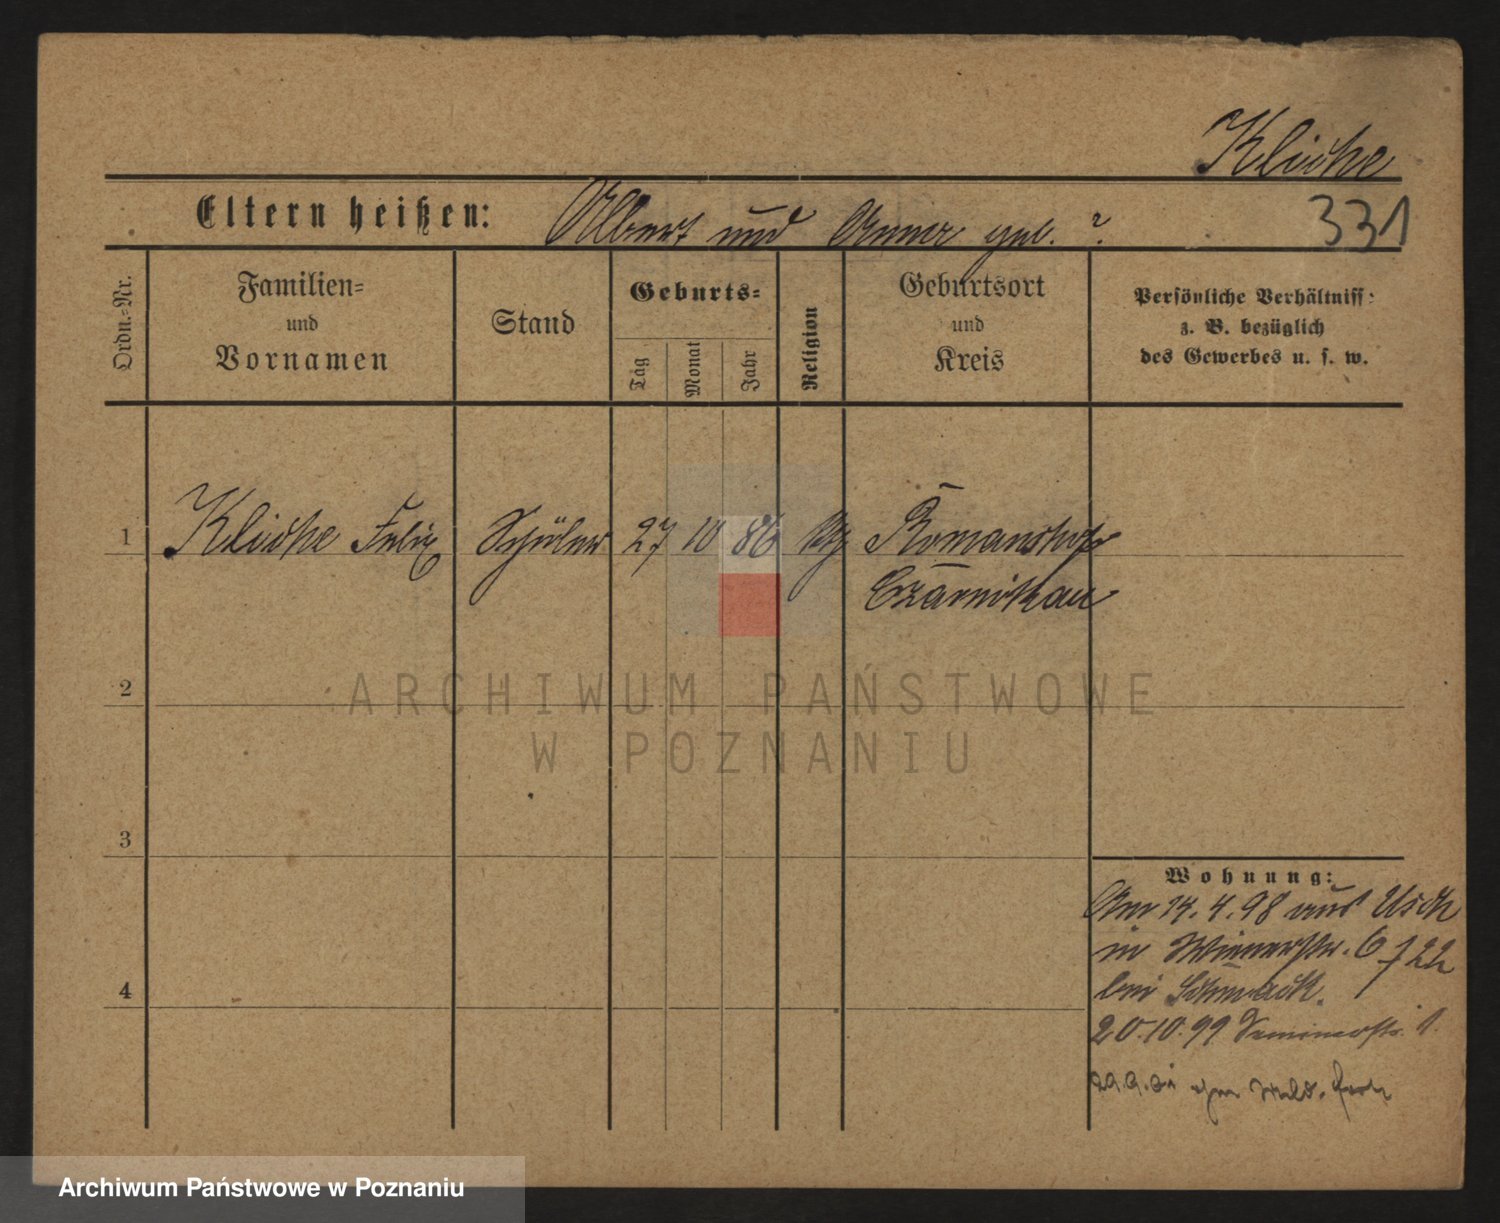 Klicke
Eltern heißen: Albert und Anna geb. ?
331
Ordn.-Nr.
Familien-
und
Vornamen
Stand
Geburts-
Tag
Monat
Jahr
Religion
Geburtsort
und
Kreis
Persönliche Verhältniss:
z. B. bezüglich
des Gewerbes u. s. w.
1 Klicke Felix Schüler 27 10 86 Romanshof
Czarnikau
2
3
4
Wohnung:
Am 14.4.98 aus Usch
in Wienerstr. 6
bei
20.10.99 Seminarstr. 1.
ARCHIWUM PAŃSTWOWE
W POZNANIU
Archiwum Państwowe w Poznaniu